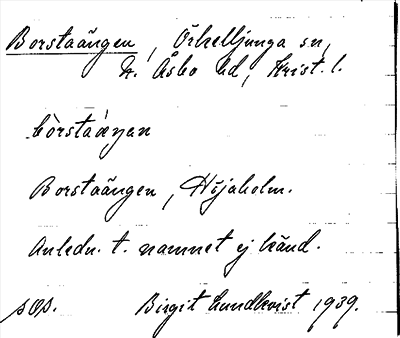 Borstaängen, Örkelljunga sn,
N. Åsbo hd, Krist. l.
Borstaängen, Höjaholm.
Anledn. t. namnet ej känd.
Birgit Lundkvist 1939.